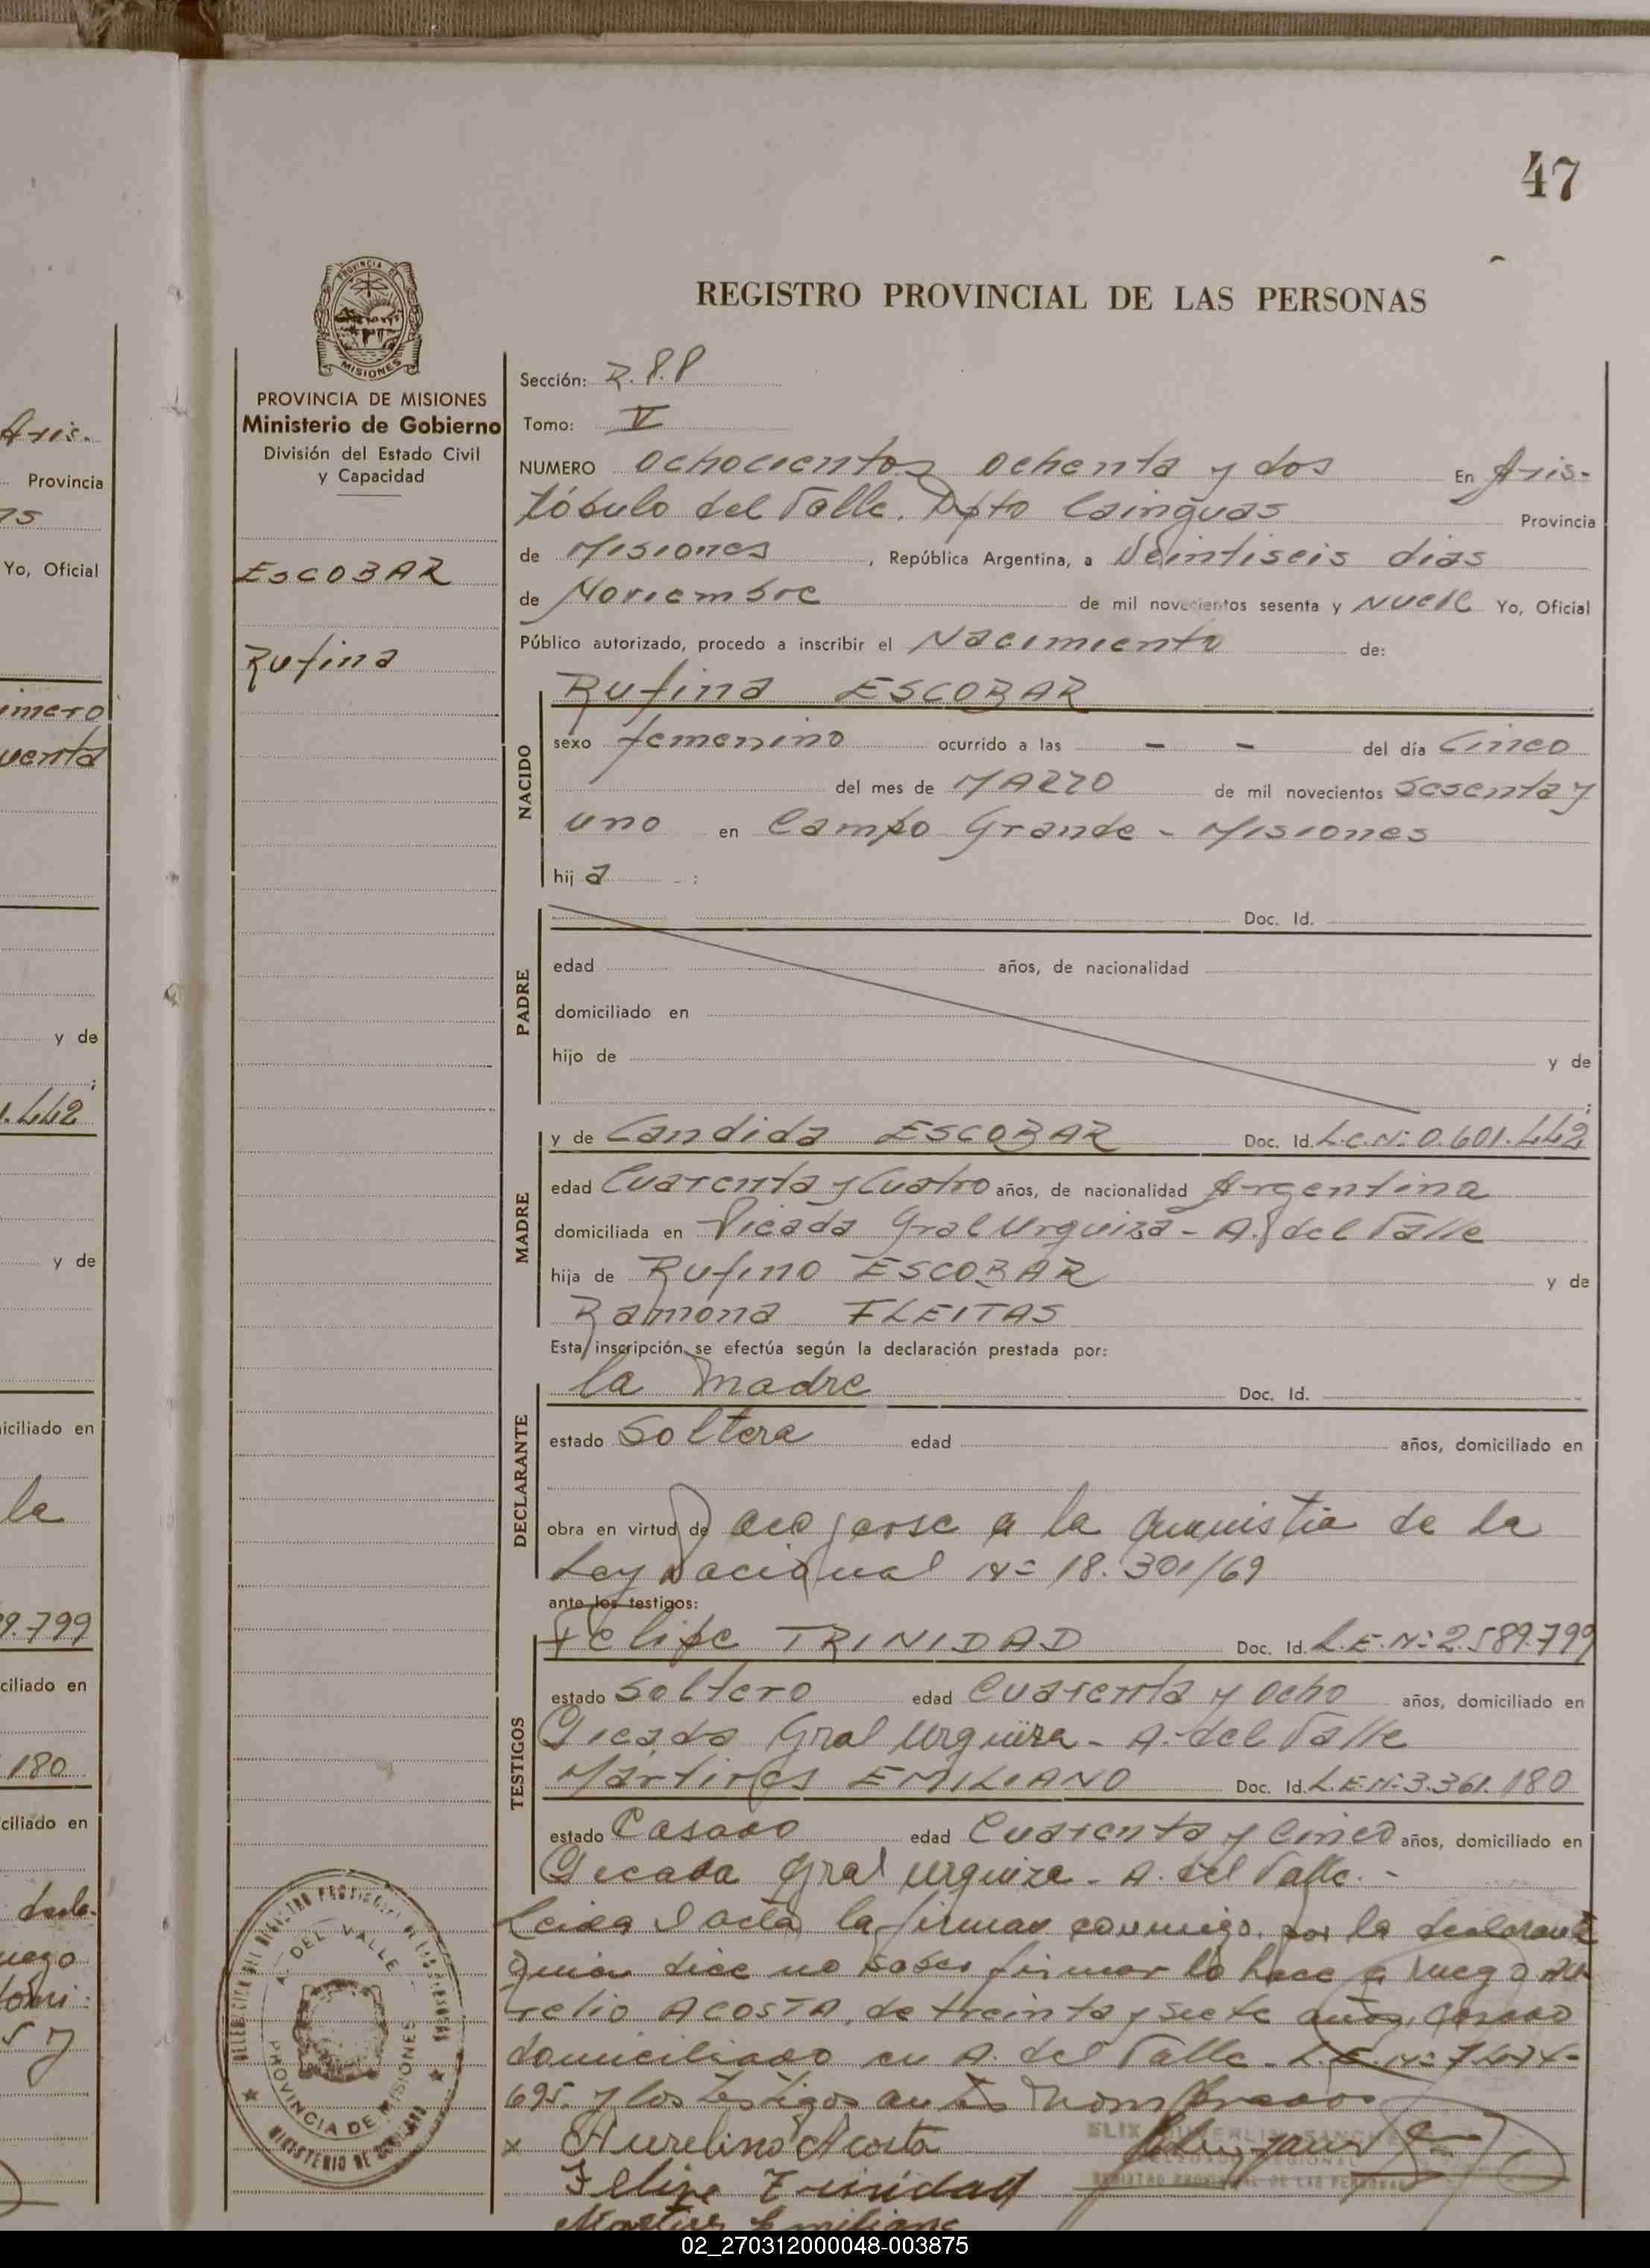 47
REGISTRO PROVINCIAL DE LAS PERSONAS
PROVINCIA DE
MISIONES
PROVINCIA DE MISIONES
Ministerio de Gobierno
División del Estado Civil
y Capacidad
ESCOBAR
Rufina
Sección: R.P.P
Tomo: V
NUMERO ochocientos ochenta y dos En Aris-
tóbulo del Valle. Dpto Cainguas Provincia
de Misiones, República Argentina, a Veintiseis dias
de Noviembre de mil novecientos sesenta y nueve Yo, Oficial
Público autorizado, procedo a inscribir el Nacimiento de:
NACIDO
Rufina ESCOBAR
sexo femenino ocurrido a las - - del día Cinco
del mes de MARZO de mil novecientos sesenta y
uno en Campo Grande - Misiones
hija :
PADRE
Doc. Id.
edad años, de nacionalidad
domiciliado en
hijo de y de
;
MADRE
y de Candida ESCOBAR Doc. Id. L.C.Nº 0.601.442
edad Cuarenta y Cuatro años, de nacionalidad Argentina
domiciliada en Picada Gral Urquiza - A. del Valle
hija de Rufino ESCOBAR y de
Ramona FLEITAS
Esta inscripción se efectúa según la declaración prestada por:
DECLARANTE
la madre Doc. Id.
estado Soltera edad años, domiciliado en
obra en virtud de acojerse a la amnistia de la
Ley Nacional Nº 18.301/69
ante los testigos:
TESTIGOS
Felipe TRINIDAD Doc. Id. L.E.Nº 2.589.799
estado soltero edad Cuarenta y ocho años, domiciliado en
Picada Gral Urquiza - A. del Valle
Mártires EMILIANO Doc. Id. L.E.Nº 3.361.180
estado Casado edad Cuarenta y Cinco años, domiciliado en
Picada Gral Urquiza - A. del Valle. -
Leida l acta la firman conmigo, por la declarante
quien dice no saber firmar lo hace a ruego Au
relio ACOSTA, de treinta y siete años, casado
domiciliado en A. del Valle - L.E.Nº 7.474-
695. y los testigos antes nombrados
x Aurelino Acosta
Felipe Trinidad
Martires Emiliano
SANCHE
DELEGADO REGIONAL
REGISTRO PROVINCIAL DE LAS PERSONAS
DELEGACION DEL REGISTRO PROVINCIAL DE LAS PERSONAS
A. DEL VALLE
PROVINCIA DE MISIONES
MINISTERIO DE GOBIERNO
Aris-
Provincia
Yo, Oficial
y de
1.442
y de
iciliado en
la
9.799
ciliado en
180
ciliado en
02_270312000048-003875